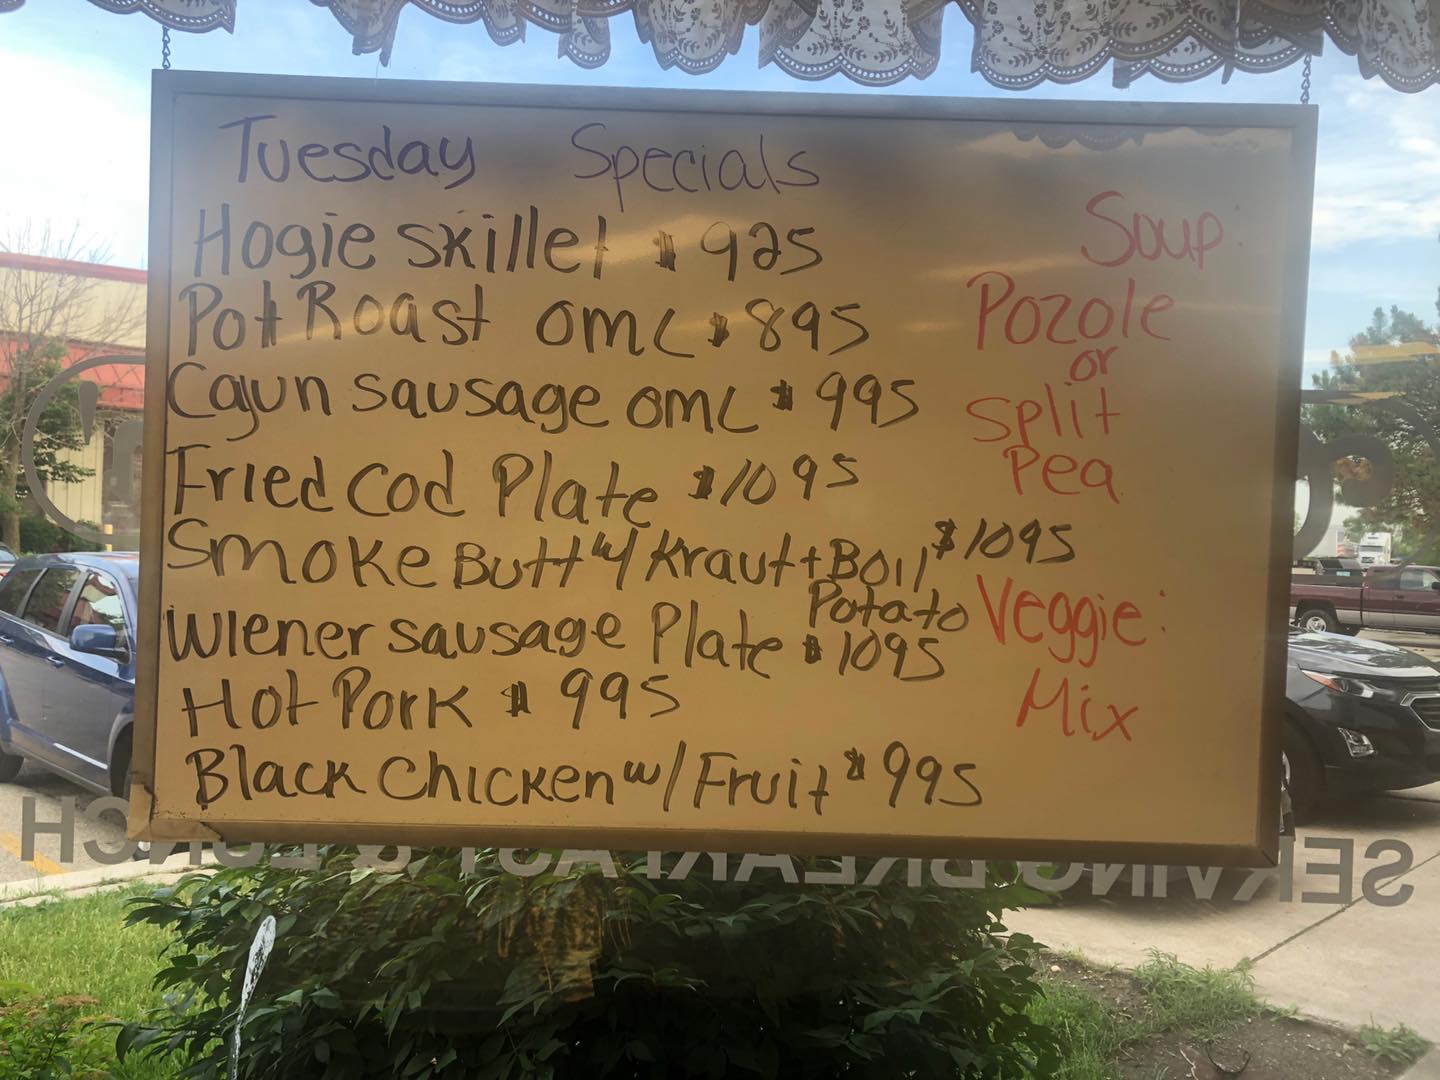 Tuesday Specials
Hogie skillet $925
Pot Roast OML $895
Cajun sausage OML $995
Fried Cod Plate $1095
Smoke Butt w/ Kraut + Boil $1095
Potato
Wiener sausage Plate $1095
Hot Pork $995
Black Chicken w/ Fruit $995
Soup:
Pozole
or
Split
Pea
Veggie:
Mix
SERVING BREAKFAST & LUNCH